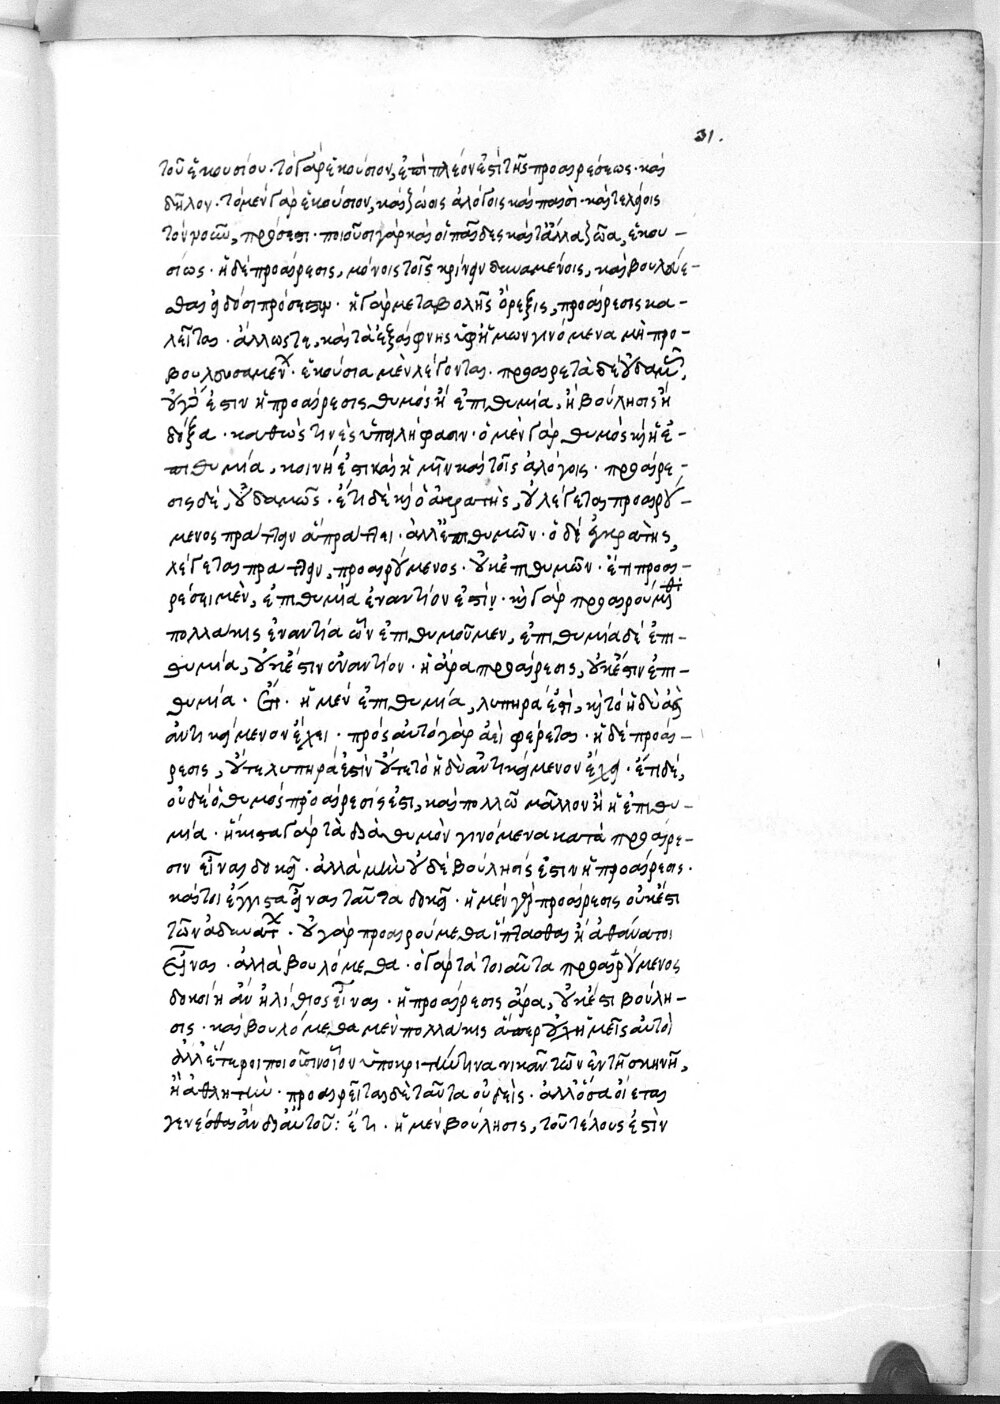 31.
τοῦ ἑκουσίου· τὸ γὰρ ἑκούσιον, ἐπὶ πλέον ἐστὶ τῆς προαιρέσεως· καὶ
δῆλον· τὸ μὲν γὰρ ἑκούσιον, καὶ ζώοις ἀλόγοις καὶ παισὶ· καὶ τελείοις
τὸν νοῦν, πρόσεστι· ποιοῦσι γὰρ καὶ οἱ παῖδες καὶ τἆλλα ζῶα, ἑκου-
σίως· ἡ δὲ προαίρεσις, μόνοις τοῖς κρίνειν δυναμένοις, καὶ βουλεύε-
σθαι εἰδόσι πρόσεστιν· ἡ γὰρ μετὰ βολῆς ὄρεξις, προαίρεσις κα-
λεῖται· ἄλλως τε, καὶ τὰ ἐξαίφνης ὑφ' ἡμῶν γινόμενα μὴ προ-
βουλευσαμένων· ἑκούσια μὲν λέγονται· προαιρετὰ δὲ οὐδαμῶς,
οὐ γάρ ἐστιν ἡ προαίρεσις θυμὸς ἢ ἐπιθυμία, ἢ βούλησις ἢ
δόξα· καθώς τινες ὑπειλήφασιν· ὁ μὲν γὰρ θυμὸς καὶ ἡ ἐ-
πιθυμία, κοινή ἐστι καὶ ἡμῖν καὶ τοῖς ἀλόγοις· προαίρε-
σις δὲ, οὐδαμῶς· ἔτι δὲ καὶ ὁ ἀκρατὴς, οὐ λέγεται προαιρού-
μενος πράττειν ἃ πράττει· ἀλλ' ἐπιθυμῶν· ὁ δὲ ἐγκρατὴς,
λέγεται πράττειν, προαιρούμενος· οὐκ ἐπιθυμῶν· ἔτι προαι-
ρέσει μὲν, ἐπιθυμία ἐναντίον ἐστίν· καὶ γὰρ προαιρούμεθα
πολλάκις ἐναντία ὧν ἐπιθυμοῦμεν, ἐπιθυμία δὲ ἐπι-
θυμία, οὐκ ἔστιν ἐναντίον· ἡ ἄρα προαίρεσις, οὐκ ἔστιν ἐπι-
θυμία· Ἔτι· ἡ μὲν ἐπιθυμία, λυπηρά ἐστι, καὶ τὸ ἡδὺ ἀεὶ
ἀντικείμενον ἔχει· πρὸς αὐτὸ γὰρ ἀεὶ φέρεται· ἡ δὲ προαί-
ρεσις, οὔτε λυπηρά ἐστὶν οὔτε τὸ ἡδὺ ἀντικείμενον ἔχει· ἔτι δέ,
οὐδὲ ὁ θυμὸς προαίρεσίς ἐστι, καὶ πολλῶ μᾶλλον ἢ ἡ ἐπιθυ-
μία· ἥκιστα γὰρ τὰ διὰ θυμὸν γινόμενα κατὰ προαίρε-
σιν εἶναι δοκεῖ· ἀλλὰ μὴν οὐδὲ βούλησίς ἐστιν ἡ προαίρεσις·
καίτοι ἔγγιστα εἶναι ταῦτα δοκεῖ· ἡ μὲν γὰρ προαίρεσις οὐκ ἔστι
τῶν ἀδυνάτων· οὐ γὰρ προαιρούμεθα ἵπτασθαι ἢ ἀθάνατοι
εἶναι· ἀλλὰ βουλόμεθα· ὁ γὰρ τὰ τοιαῦτα προαιρούμενος
δοκοίη ἂν ἠλίθιος εἶναι· ἡ προαίρεσις ἄρα, οὐκ ἔστι βούλη-
σις· καὶ βουλόμεθα μὲν πολλάκις ἅπερ οὐχ ἡμεῖς αὐτοὶ
ἀλλ' ἕτεροι ποιοῦσιν οἷον ὑποκριτήν τινα νικᾶν τῶν ἐν τῆ σκηνῆ,
ἢ ἀθλητήν· προαιρεῖται δὲ ταῦτα οὐδείς· ἀλλ' ὅσα οἴεται
γενέσθαι ἂν δι' αὑτοῦ: ἔτι· ἡ μὲν βούλησις, τοῦ τέλους ἐστὶν